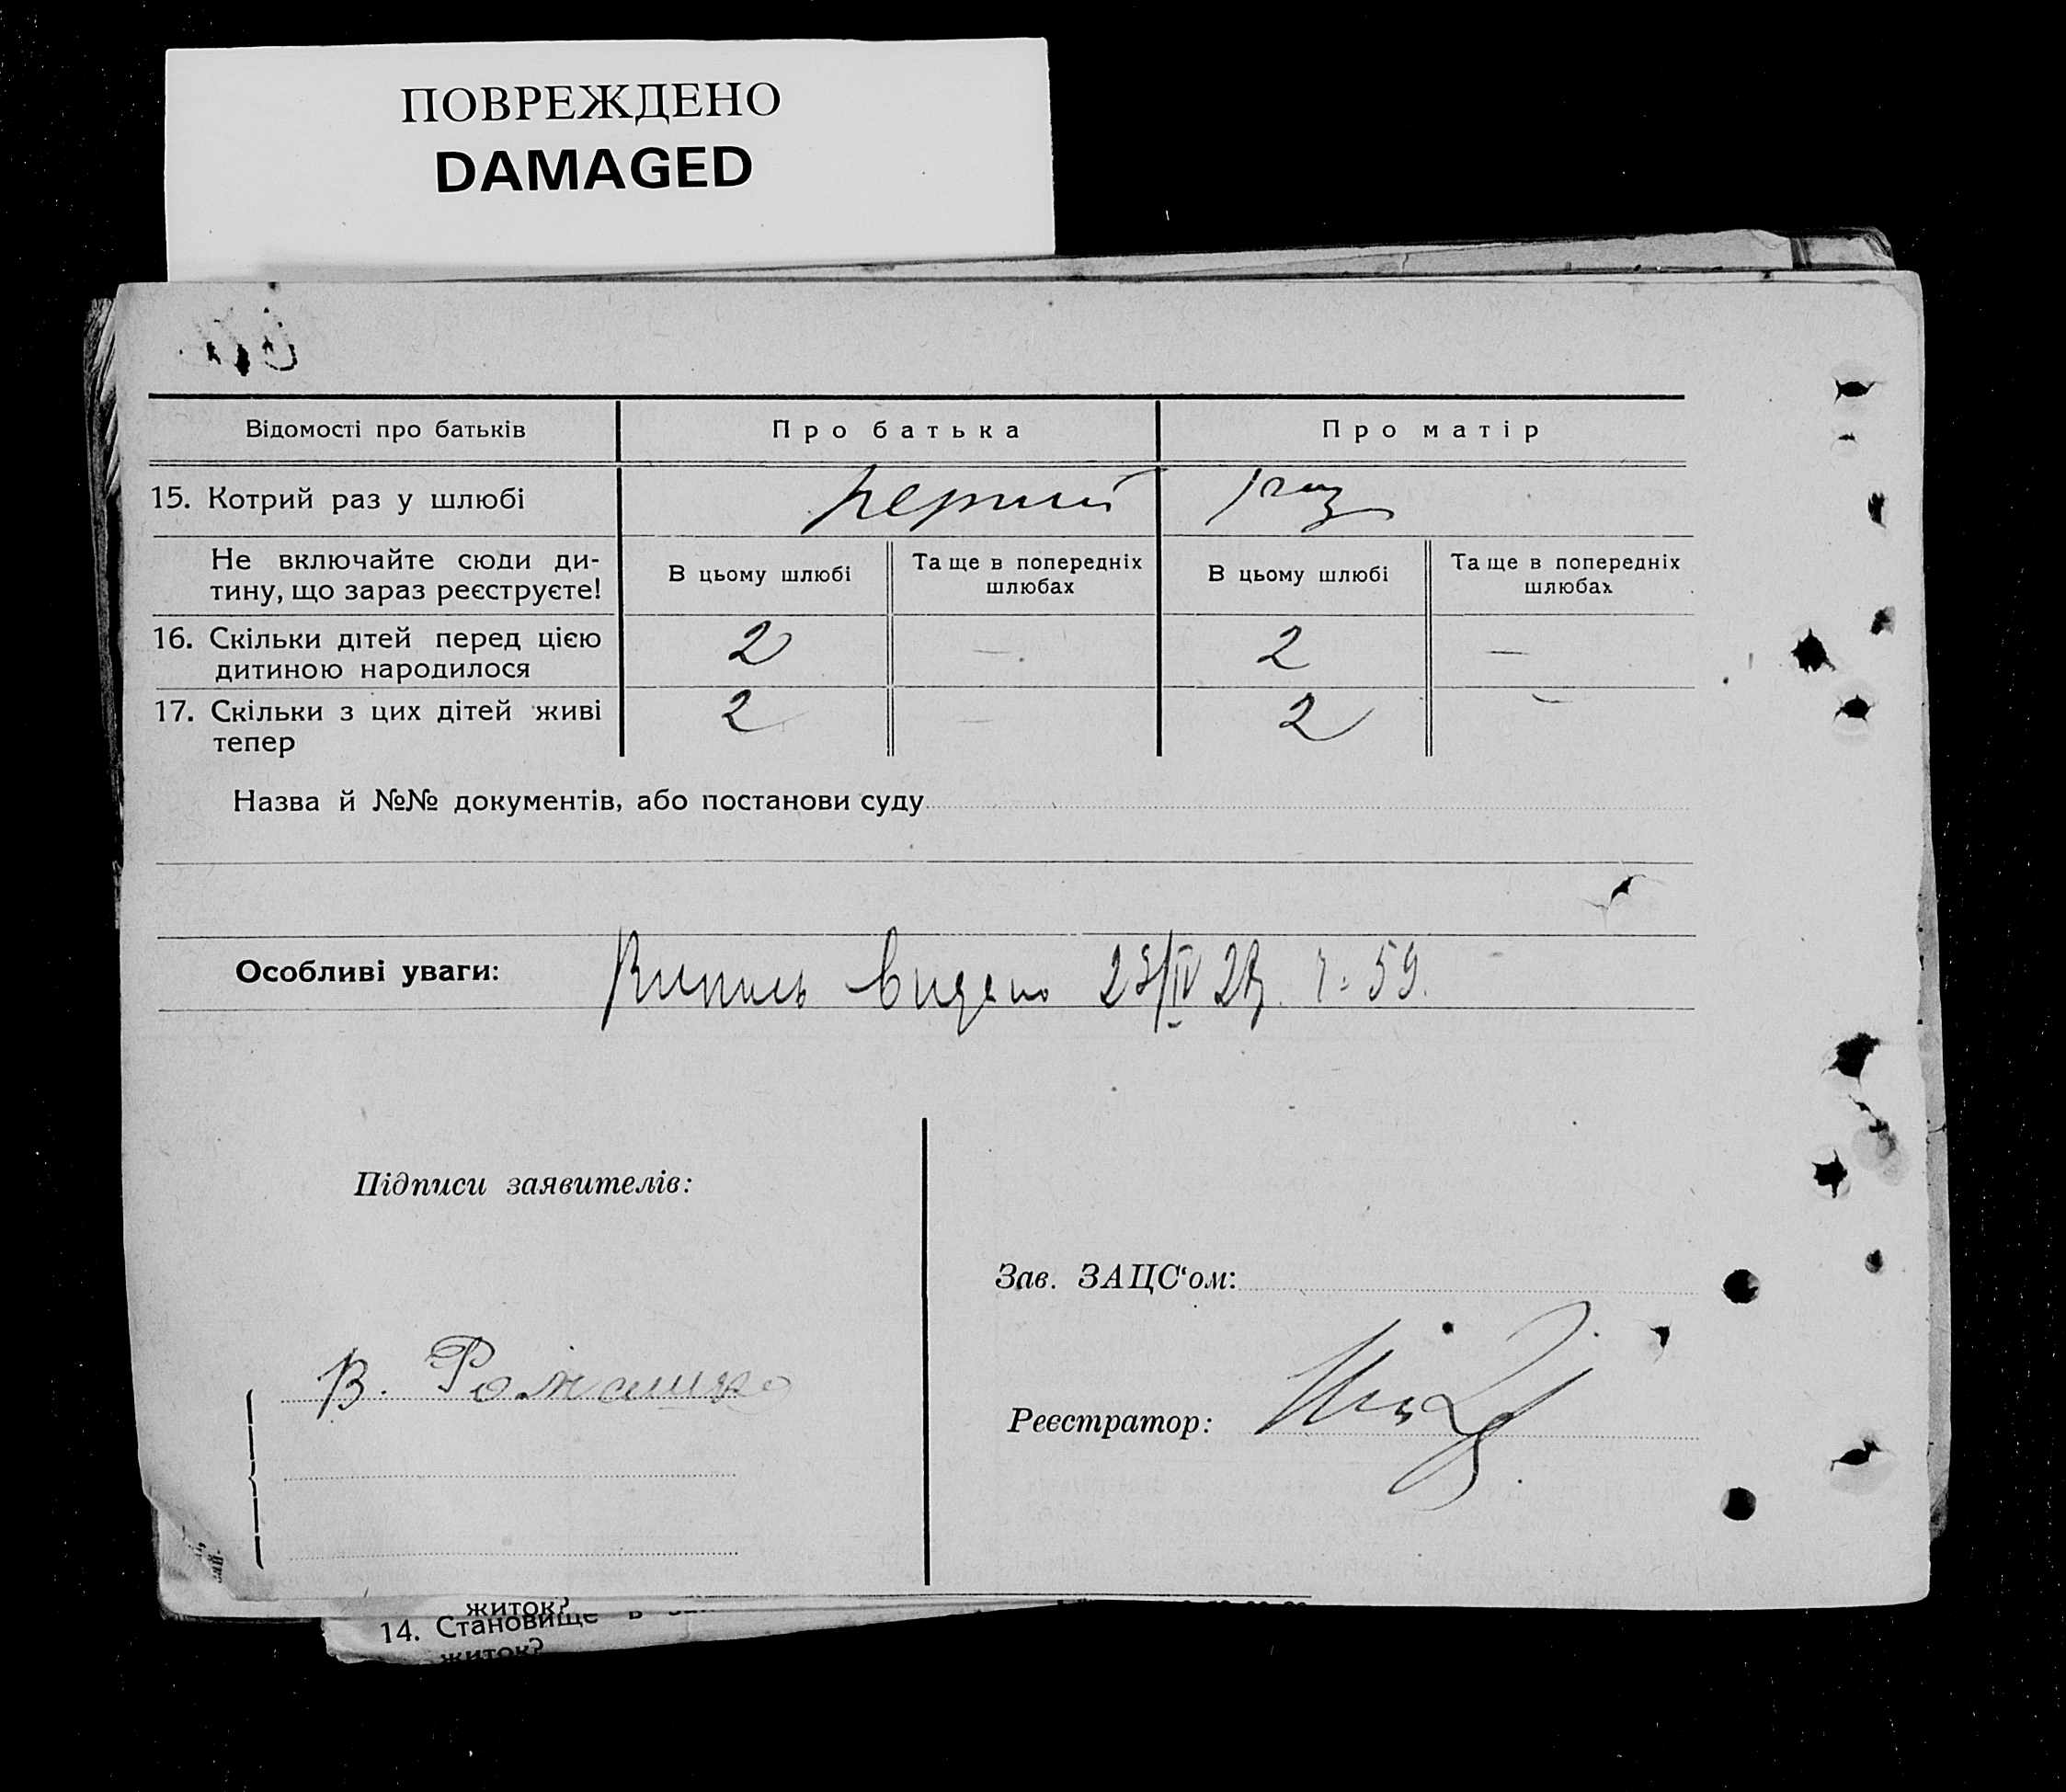 ПОВРЕЖДЕНО
DAMAGED
Відомості про батьків
Про батька
Про матір
15. Котрий раз у шлюбі
перший раз
Не включайте сюди ди-
тину, що зараз реєструєте!
В цьому шлюбі
Та ще в попередніх
шлюбах
В цьому шлюбі
Та ще в попередніх
шлюбах
16. Скільки дітей перед цією
дитиною народилося
2 — 2 —
17. Скільки з цих дітей живі
тепер
2 — 2 —
Назва й №№ документів, або постанови суду
Особливі уваги: Випись видано 23/IV 59.
Підписи заявителів:
Зав. ЗАЦС‘ом:
В.
Реєстратор:
житок?
14. Становище в
житок?